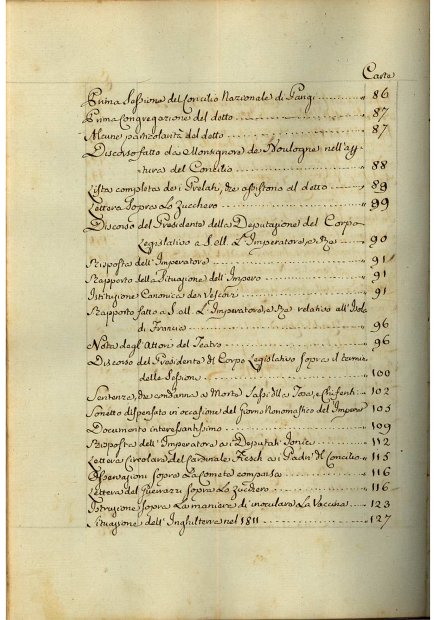 Carte
Prima Sessione del Concilio Nazionale di Parigi .......... " 86
Prima Congregazione del detto .......... " 87
Alcune particolarità del detto .......... " 87
Discorso fatto da Monsignore de Boulogne nell'ap-
tura del Concilio .......... " 88
Lista completa dei Prelati, che assistono al detto .......... " 89
Lettera sopra lo Zucchero .......... " 89
Discorso del Presidente della Deputazione del Corpo
Legislativo a S. M. L'Imperatore, e Re .......... " 90
Risposta dell'Imperatore .......... " 91
Rapporto della Situazione dell'Impero .......... " 91
Istituzione Canonica dei Vescovi .......... " 91
Rapporto fatto a S. M. L'Imperatore, e Re relativo all'Isola
di Francia .......... " 96
Nota degli Attori del Teatro .......... " 96
Discorso del Presidente del Corpo Legislativo sopra il termine
della Session .......... " 100
Sentenza, che condanna a Morte " 102
Sonetto dispensato in occasione del Giorno Nonomastico del Imper " 105
Documento interessantissimo .......... " 109
Risposta dell'Imperatore ai Deputati Ionici .......... " 112
Lettera Circolare del Cardinale Fesch ai Padri del Concilio .. " 115
Osservazioni sopra La Cometa comparsa .......... " 116
Lettera del sopra Lo Zucchero .......... " 116
Istruzione sopra La maniera di inoculare La Vaccina .... " 123
Situazione dell'Inghilterra nel 1811 .......... " 127